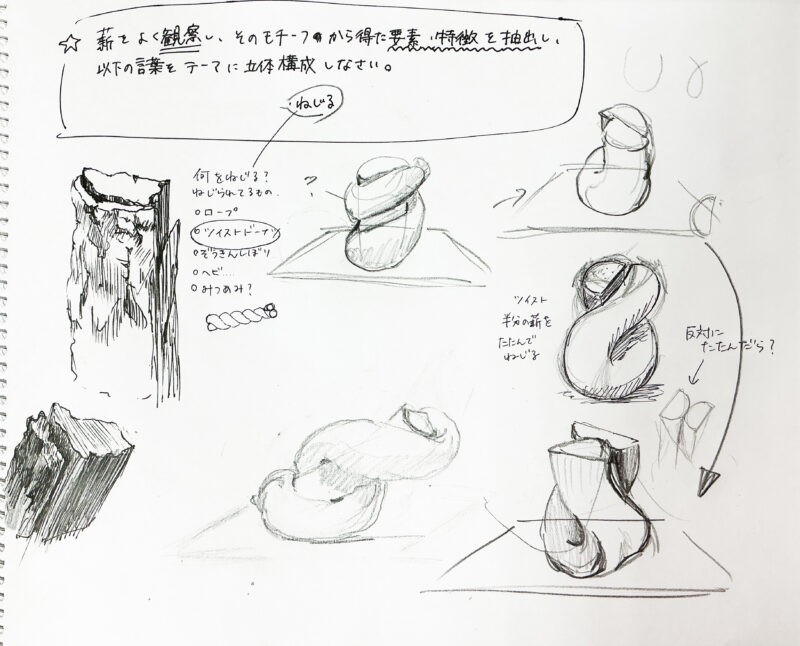 ☆ 薪をよく観察し、そのモチーフから得た要素・特徴を抽出し、
以下の言葉をテーマに立体構成しなさい。
ねじる
何をねじる?
ねじられてるもの。
○ロープ
○ツイストドーナツ
○ぞうきんしぼり
○ヘビ....
○みつあみ?
?
ツイスト
半分の薪を
たたんで
ねじる
反対に
たたんだら?